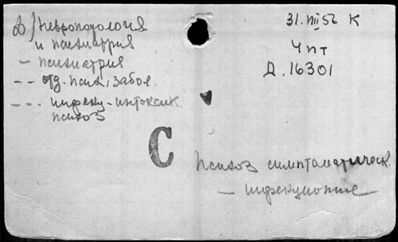 2) Невропатология
и психиатрия
— психиатрия
-- отд. псих. забол.
--- инфекц-интоксик.
психоз
31.VIII 56 К
Чпт
Д.16301
С
Психоз симптоматическ.
— инфекционные —